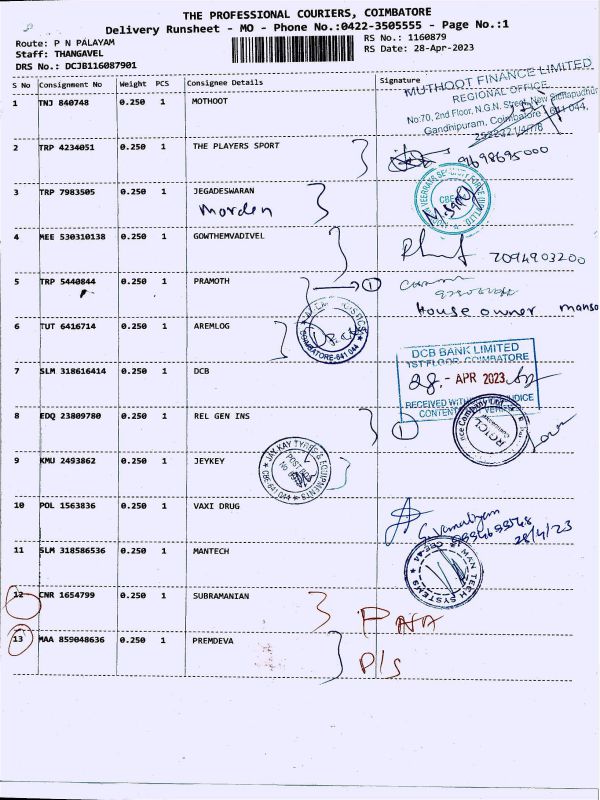 THE PROFESSIONAL COURIERS, COIMBATORE
Delivery Runsheet - MO - Phone No.:0422-3505555 - Page No.:1
Route: P N PALAYAM
Staff: THANGAVEL
DRS No.: DCJB116087901
RS No.: 1160879
RS Date: 28-Apr-2023
S No Consignment No Weight PCS Consignee Details Signature
1 TNJ 840748 0.250 1 MOTHOOT
MUTHOOT FINANCE LIMITED
REGIONAL OFFICE
No:70, 2nd Floor, N.G.N. Street, New Siddhapudhur
Gandhipuram, Coimbatore 641 044.
2 TRP 4234051 0.250 1 THE PLAYERS SPORT
9698695000
3 TRP 7983505 0.250 1 JEGADESWARAN
Morden
4 MEE 530310138 0.250 1 GOWTHEMVADIVEL
7094903200
5 TRP 5440844 0.250 1 PRAMOTH
1
House owner
6 TUT 6416714 0.250 1 AREMLOG
COIMBATORE-641 044
7 SLM 318616414 0.250 1 DCB
DCB BANK LIMITED
1ST FLOOR, COIMBATORE
28 - APR 2023
RECEIVED WITHOUT PREJUDICE
8 EDQ 23809780 0.250 1 REL GEN INS
1
9 KMU 2493862 0.250 1 JEYKEY
JAY KAY TYRES & EQUIPMENTS
CBE-641 044
10 POL 1563836 0.250 1 VAXI DRUG
28/4/23
11 SLM 318586536 0.250 1 MANTECH
MAN TECH SYSTEMS
12 CNR 1654799 0.250 1 SUBRAMANIAN
13 MAA 859048636 0.250 1 PREMDEVA
P/s